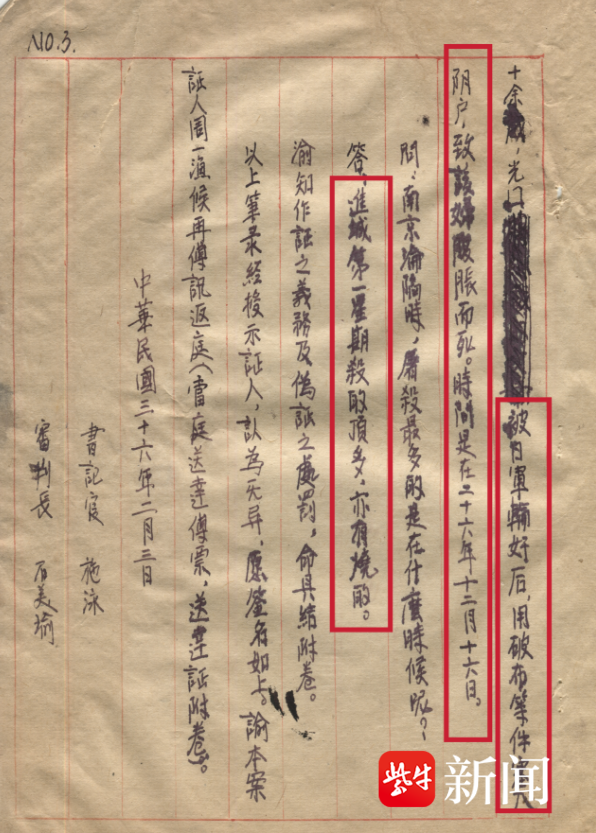 NO.3.
十余歲，光口被日軍輪奸后，用破布等件塞入
阴户，致該婦腹脹而死。時間是在二十六年十二月十六日。
問：南京淪陷時，屠殺最多的是在什麼時候呢？
答：進城第一星期殺的頂多，亦有燒的。
諭知作証之義務及偽証之處罰，命具結附卷。
以上筆录經授示証人，认為无异，愿簽名如上。諭本案
証人周一漁候再傳訊返庭（當庭送達傳票，送達証附卷）。
中華民國三十六年二月三日
書記官 施泳
審判長 石美瑜
紫牛新闻